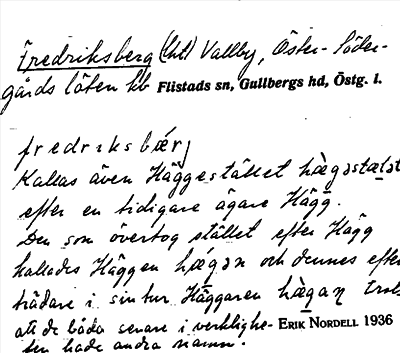 Fredriksberg (lht) Vallby, Öster- Söder-
gårds löten kb Flistads sn, Gullbergs hd, Östg. l.
fredriksbær̨j
Kallas även Häggestället hægəstælət
efter en tidigare ägare Hägg.
Den som övertog stället efter Hägg
kallades Häggen hægən och dennes efter
trädare i sin tur Häggaren hægan trots
att de båda senare i verklighe- ERIK NORDELL 1936
ten hade andra namn.